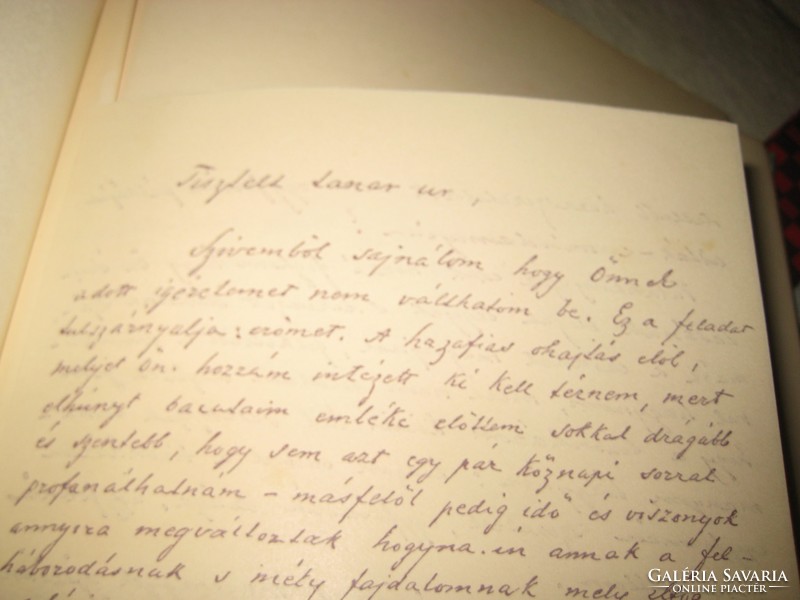 Tisztelt tanar ur,
Szivemből sajnálom hogy Önnek
adott igeretemet nem válthatom be. Ez a feladat
tulszárnyalja erőmet. A hazafias ohajtás elől,
melyet Ön hozzám intézett ki kell térnem, mert
elhúnyt barataim emléke előttem sokkal drágább
és szentebb, hogy sem azt egy pár köznapi sorral
profanálhatnám – másfelől pedig idő és viszonyok
annyira megváltoztak hogyha én annak a fel-
háborodásnak s mély fajdalomnak mely
GALÉRIA SAVARIA
ONLINE PIACTÉR